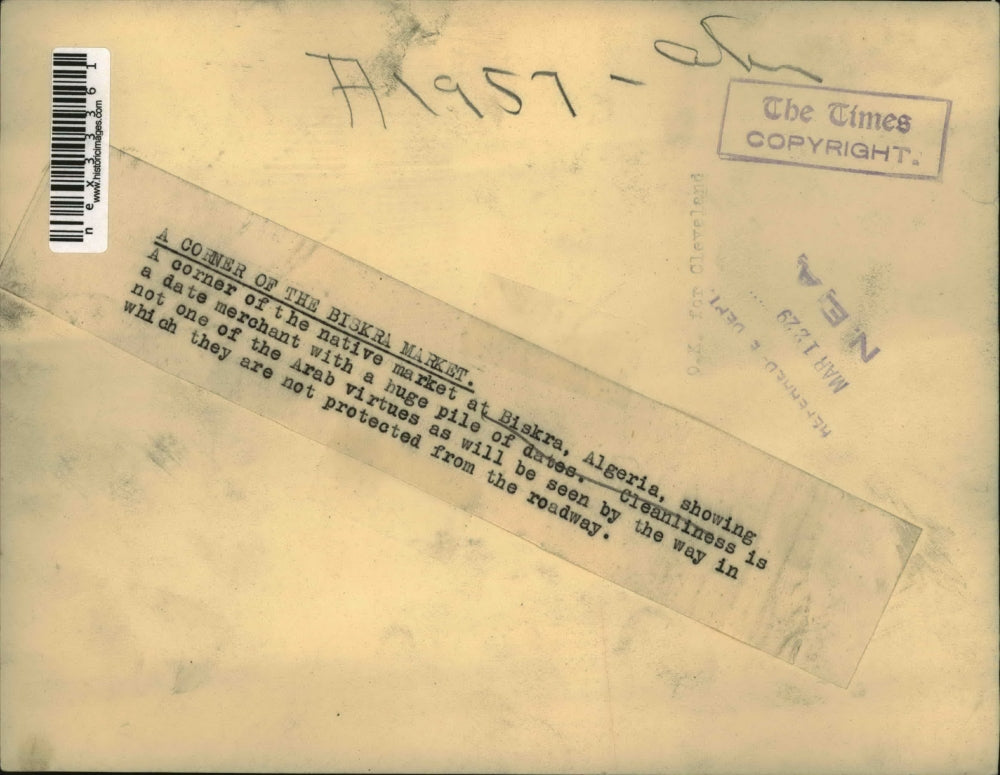 A1957 -
The Times
COPYRIGHT.
nex3333 61
www.historicimages.com
O.K. for Cleveland
N.E.A.
MAR 12 29
REFERENCE DEPT.
A CORNER OF THE BISKRA MARKET.
A corner of the native market at Biskra, Algeria, showing
a date merchant with a huge pile of dates. Cleanliness is
not one of the Arab virtues as will be seen by the way in
which they are not protected from the roadway.